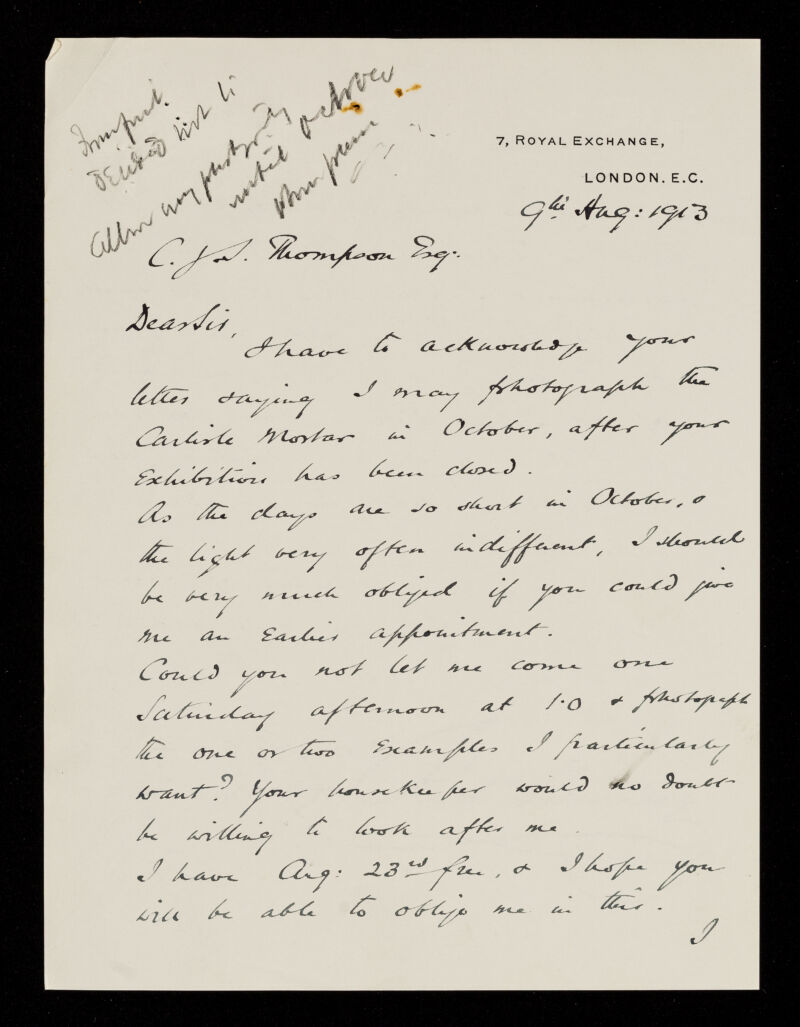 decided not to
allow any photographs
until October
7, ROYAL EXCHANGE,
LONDON. E.C.
9th Aug: 1913
C. J. S. Thompson Esq:
Dear Sir,
I have to acknowledge your
letter saying I may photograph the
Carlisle Mortar in October, after your
Exhibition has been closed.
As the days are so short in October, &
the light very often indifferent, I should
be very much obliged if you could give
me an Earlier appointment.
Could you not let me come one
Saturday afternoon at 1.0 & photograph
the one or two Examples I particularly
want? Your housekeeper would no doubt
be willing to look after me.
I have Aug: 23rd free, & I hope you
will be able to oblige me in this.
I